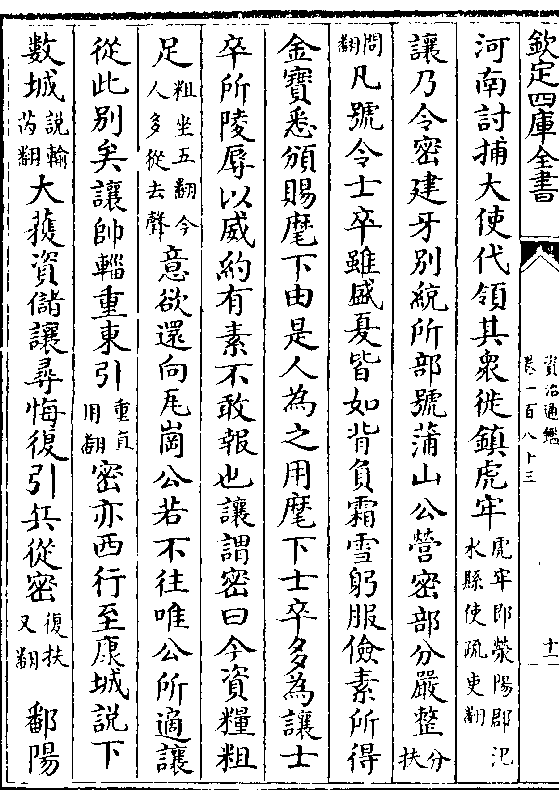 欽定四庫全書
資治通鑑
卷一百八十三
十一
河南討捕大使代領其衆徙鎮虎牢虎牢即滎陽郡汜水縣使疏吏翻
讓乃令密建牙别統所部號蒲山公營密部分嚴整分扶
問翻凡號令士卒雖盛夏皆如背負霜雪躬服儉素所得
金寶悉頒賜麾下由是人為之用麾下士卒多為讓士
卒所陵辱以威約有素不敢報也讓謂密曰今資糧粗
足粗坐五翻今人多從去聲意欲還向瓦崗公若不往唯公所適讓
從此别矣讓帥輜重東引重直用翻密亦西行至康城說下
數城說輸芮翻大獲資儲讓尋悔復引兵從密復扶又翻鄱陽